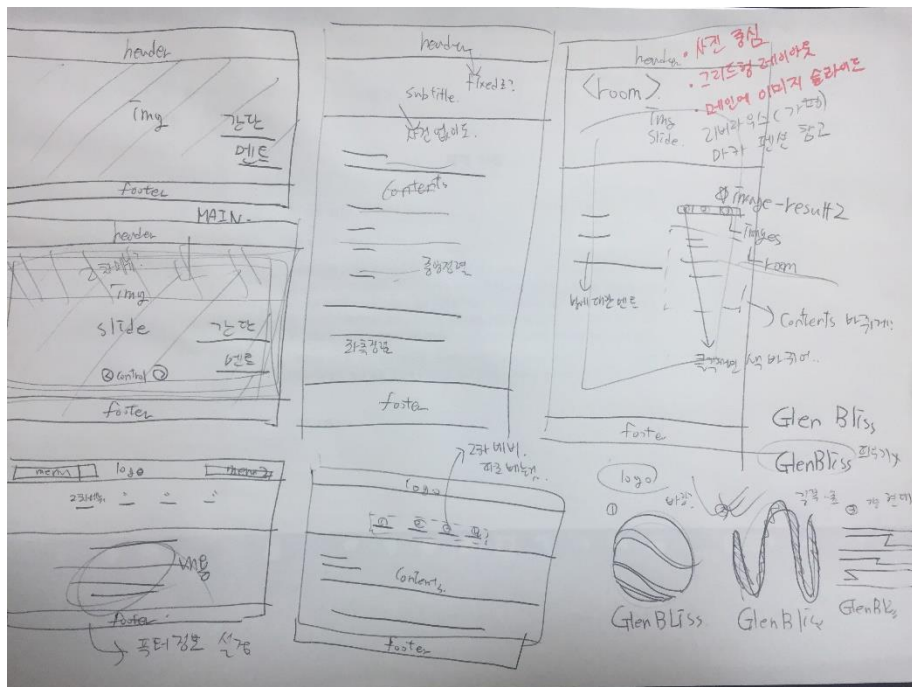 header
Img
간단
멘트
footer
MAIN.
header
Img
slide
간단
멘트
control
footer
menu
logo
menu
내용
footer
푸터정보 설정
header
fixed로?
subtitle.
Contents
중앙정렬
좌측정렬
footer
2차 네비.
logo
Contents.
footer
header
· 사진 중심
· 그리드형 레이아웃
· 메인에 이미지 슬라이드
리버하우스(가평)
마카 펜션 참고
<room>
Img
Slide.
image-result2
Images
room
방에 대한 멘트
Contents 바뀌게?
클릭하면 색 바뀌어..
footer
Glen Bliss
GlenBliss
띄우기x
logo
①
②
③
GlenBliss.
GlenBliss
GlenBliss